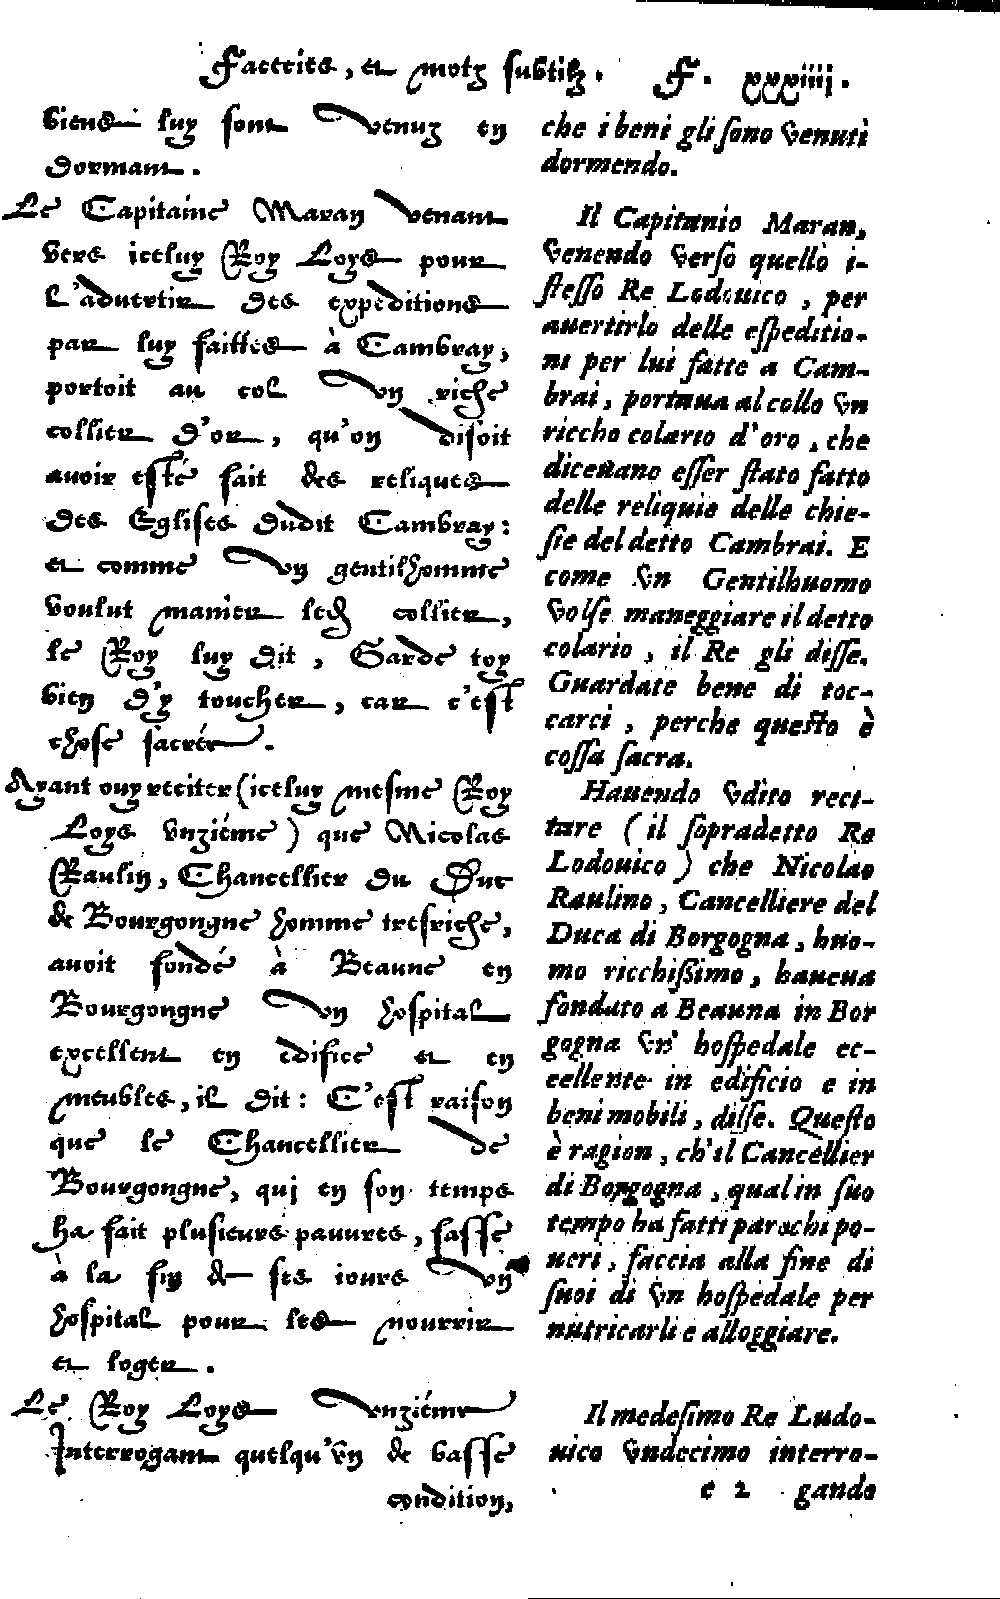 Facecies, et motz subtilz. F. xxxiiij.
biens luy sont venuz en
dormant.
Le Capitaine Maran venant
vers iceluy Roy Loys pour
l'aduertir des expeditions
par luy faittes à Cambray,
portoit au col vn riche
collier d'or, qu'on disoit
auoir esté fait des reliques
des Eglises dudit Cambray:
et comme vn gentilhomme
voulut manier led collier,
le Roy luy dit, Garde toy
bien d'y toucher, car c'est
chose sacrée.
Ayant ouy reciter (iceluy mesme Roy
Loys vnziéme) que Nicolas
Raulin, Chancellier du Duc
de Bourgongne homme tresriche,
auoit fondé à Beaune en
Bourgongne vn hospital
excellent en edifice et en
meubles, il dit: C'est raison
que le Chancellier de
Bourgongne, qui en son temps
ha fait plusieurs pauures, fasse
à la fin de ses iours vn
hospital pour les nourrir
et loger.
Le Roy Loys vnziéme
Interrogant quelqu'vn de basse
condition,
che i beni gli sono venuti
dormendo.
Il Capitanio Maran,
venendo verso quello i-
stesso Re Lodouico, per
auertirlo delle espeditio-
ni per lui fatte a Cam-
brai, portaua al collo vn
riccho colario d'oro, che
diceuano esser stato fatto
delle reliquie delle chie-
sie del detto Cambrai. E
come vn Gentilhuomo
volse maneggiare il detto
colario, il Re gli disse.
Guardate bene di toc-
carci, perche questo è
cossa sacra.
Hauendo vdito reci-
tare (il sopradetto Re
Lodouico) che Nicolao
Raulino, Cancelliere del
Duca di Borgogna, huo-
mo ricchißimo, haueua
fondato a Beauna in Bor
gogna vn' hospedale ec-
cellente in edificio e in
beni mobili, disse. Questo
è ragion, ch'il Cancellier
di Borgogna, qual in suo
tempo ha fatti parechi po-
ueri, faccia alla fine di
suoi dì vn hospedale per
nutricarli e alloggiare.
Il medesimo Re Ludo-
uico vndecimo interro-
e 2 gando